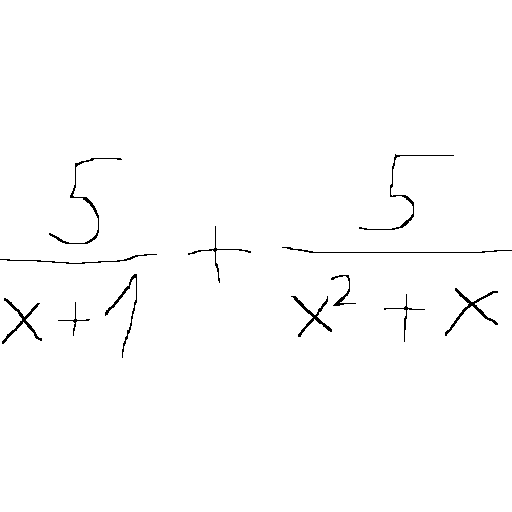 5/(x+1) + 5/(x²+x)